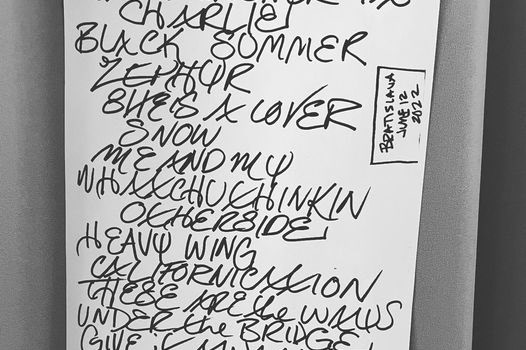 CHARLIE
BLACK SUMMER
ZEPHYR
SHE'S A LOVER
SNOW
ME AND MY
WHATCHU THINKIN
OTHERSIDE
HEAVY WING
CALIFORNICATION
THESE ARE the WAYS
UNDER the BRIDGE
GIVE it
BRATISLAVA
JUNE 12
2022